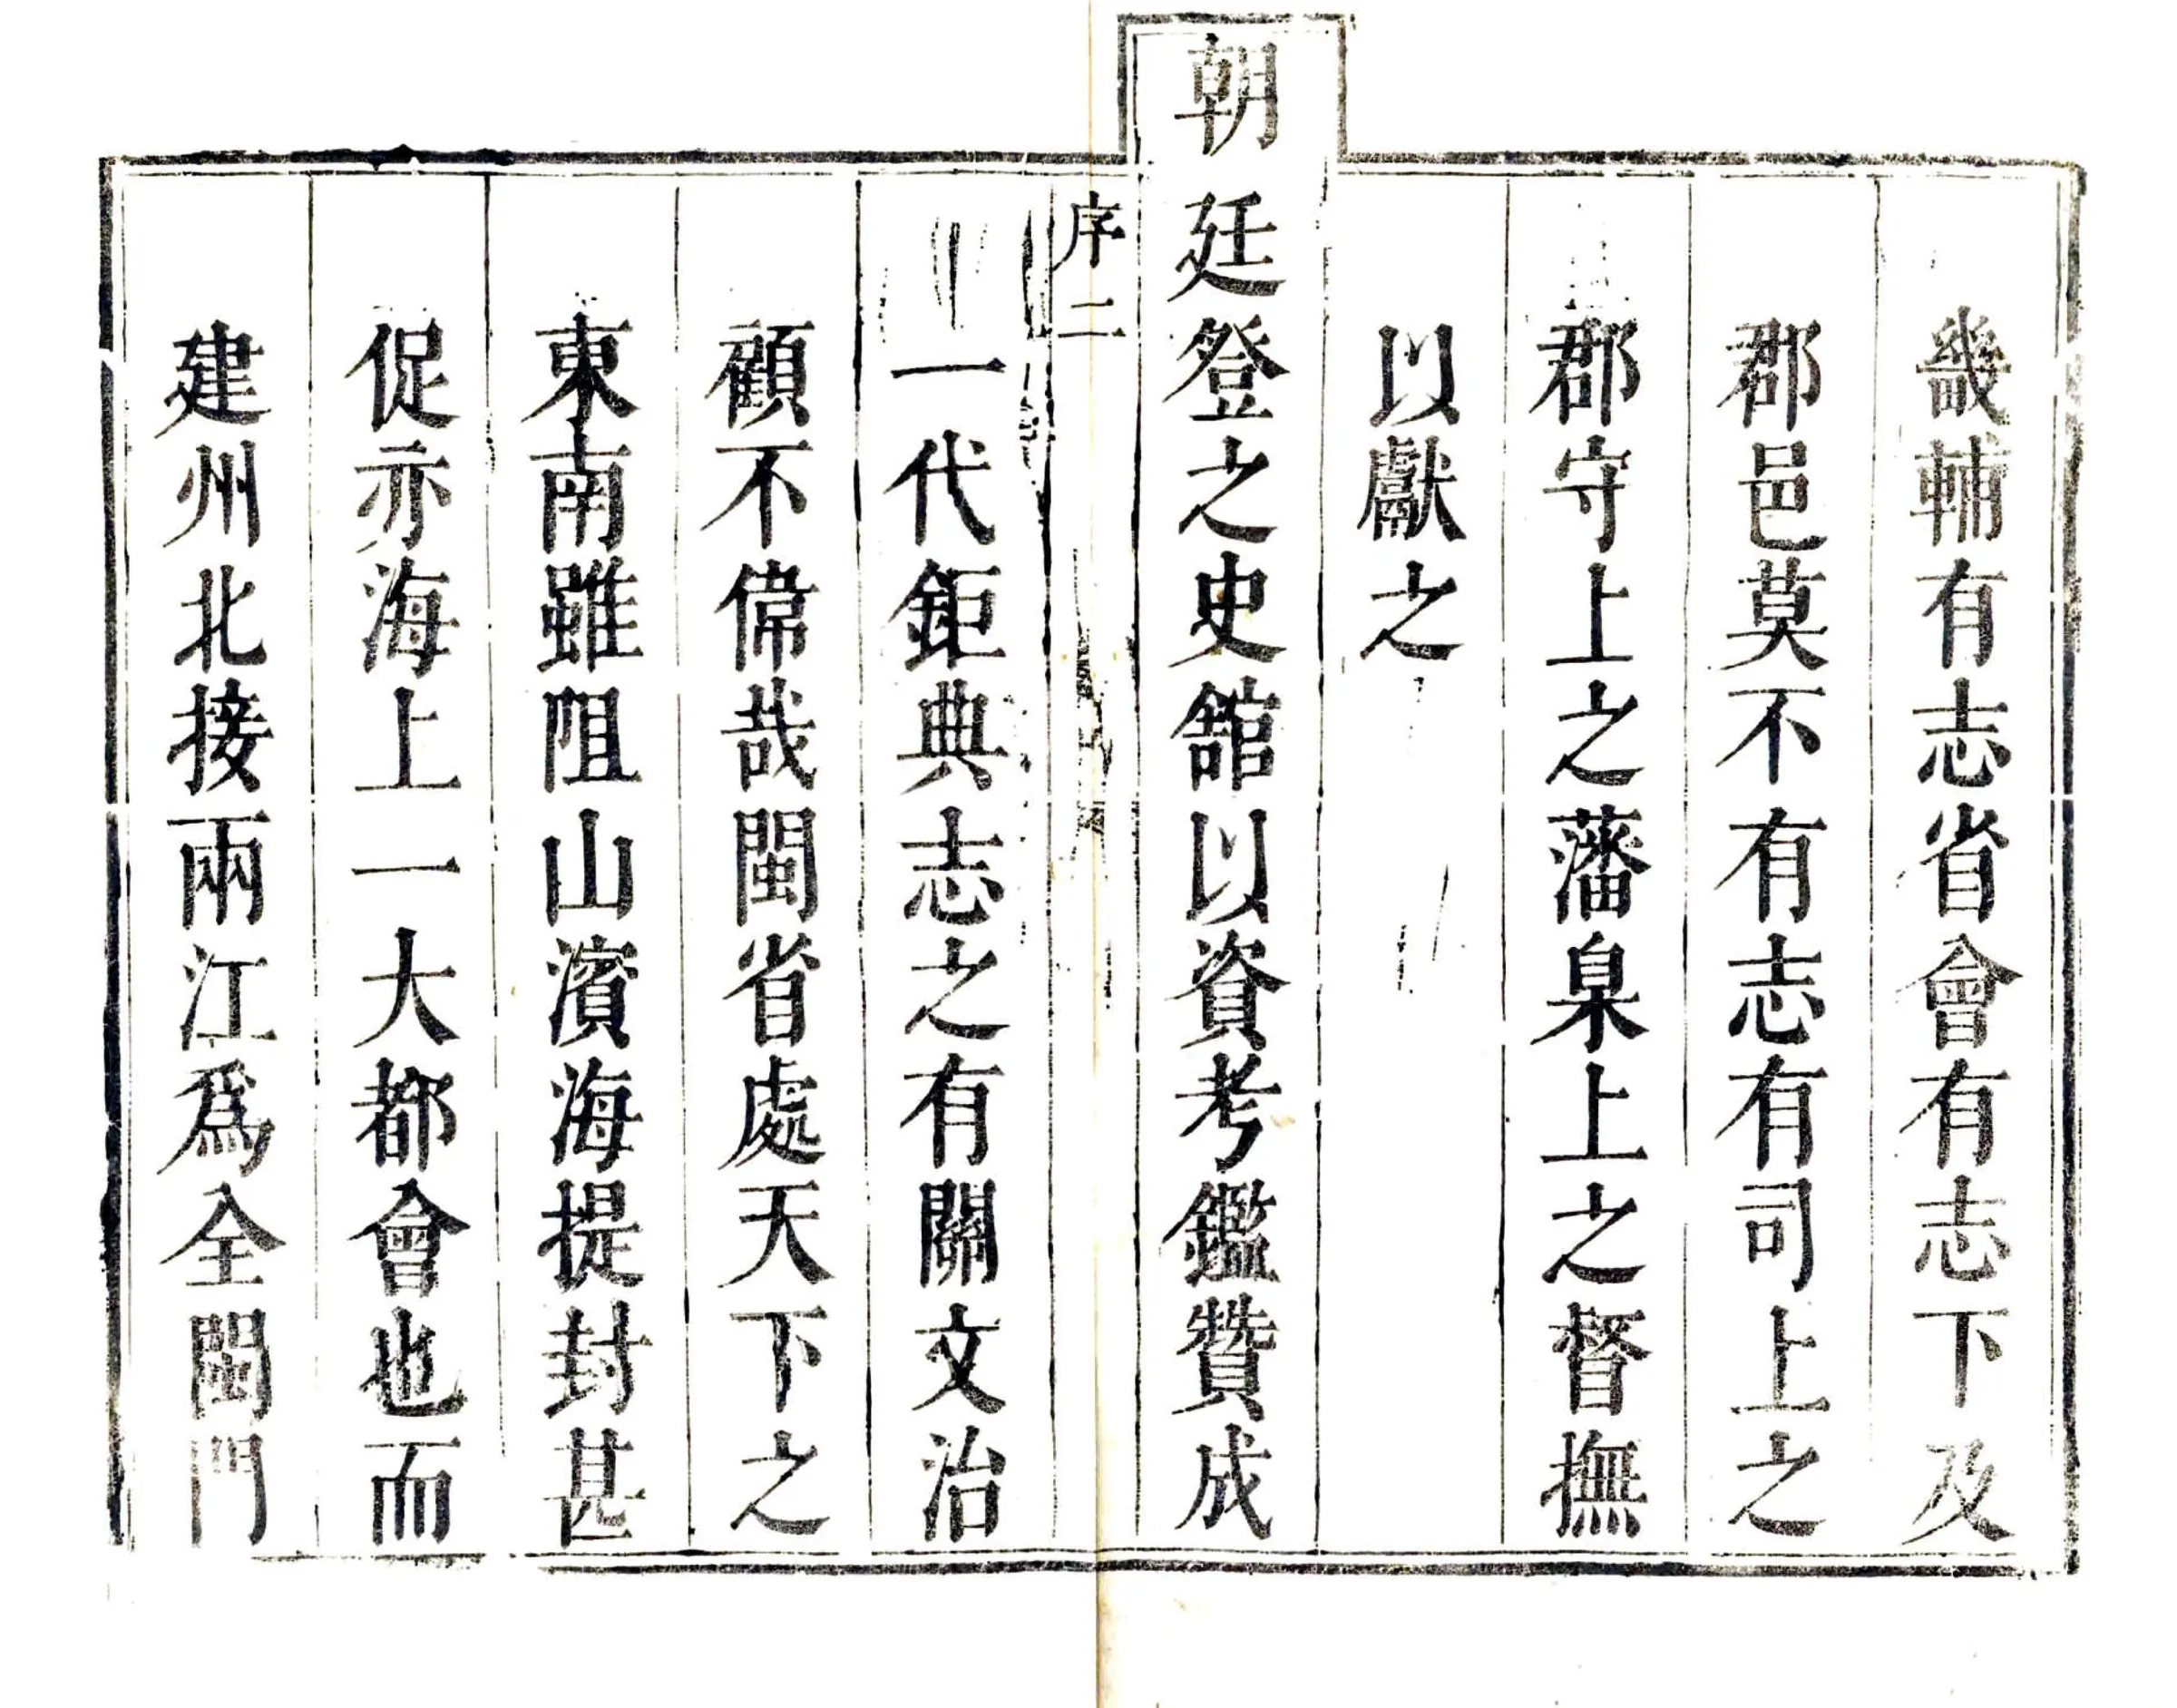 畿輔有志省會有志下及
郡邑莫不有志有司上之
郡守上之藩臬上之督撫
以獻之
朝廷登之史舘以資考鑑贊成
序二
一代鉅典志之有關文治
顧不偉哉閩省處天下之
東南雖阻山濱海提封甚
促亦海上一大都會也而
建州北接兩江爲全閩門